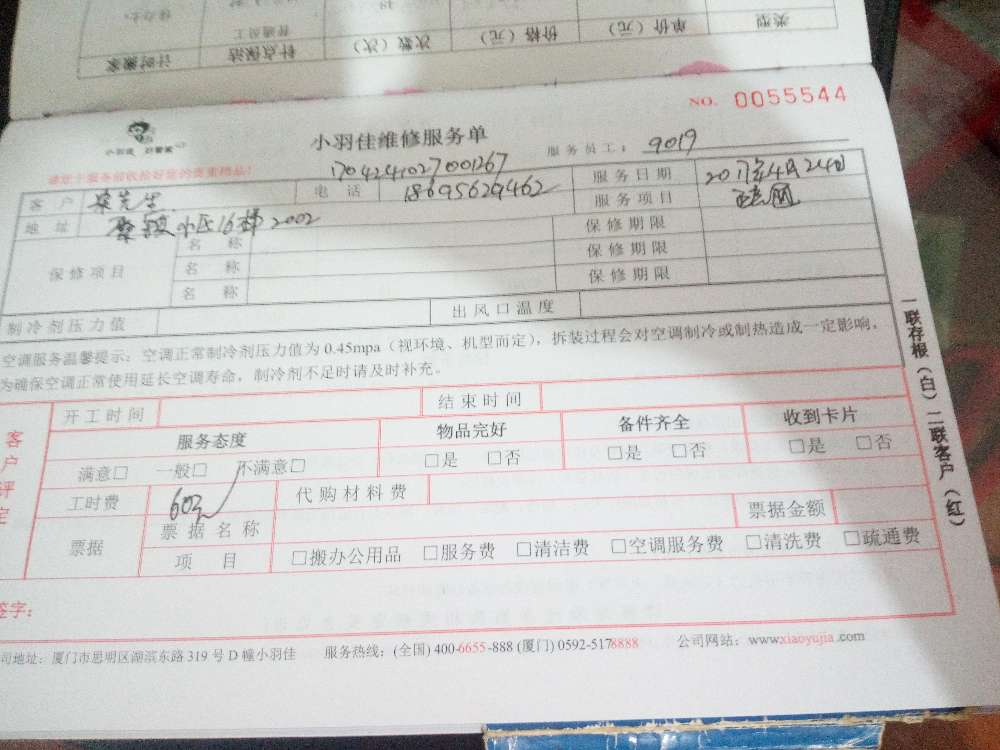 类型 单价（元） 价格（元） 次数（次） 普通员工 钟点保洁 计时搬家
NO. 0055544
小羽佳维修服务单
服务员工： 9019
1704241027001267
客户 电话 18695629462 服务日期 2017年4月24日
地址 小区16梯2002 服务项目
保修项目 名称 保修期限
名称 保修期限
名称 保修期限
制冷剂压力值 出风口温度
空调服务温馨提示：空调正常制冷剂压力值为0.45mpa（视环境、机型而定），拆装过程会对空调制冷或制热造成一定影响，
为确保空调正常使用延长空调寿命，制冷剂不足时请及时补充。
一联存根（白）二联客户（红）
客户评定
开工时间 结束时间
服务态度 物品完好 备件齐全 收到卡片
满意□ 一般□ 不满意□ □是 □否 □是 □否 □是 □否
工时费 60元 代购材料费
票据 票据名称 票据金额
项目 □搬办公用品 □服务费 □清洁费 □空调服务费 □清洗费 □疏通费
签字：
司地址：厦门市思明区湖滨东路319号D幢小羽佳 服务热线：(全国) 400-6655-888 (厦门) 0592-5178888 公司网站：www.xiaoyujia.com